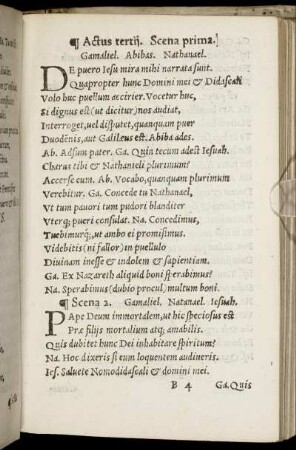 ¶ Actus tertij. Scena prima.]
Gamaliel. Abibas. Nathanael.
DE puero Iesu mira mihi narrata sunt.
Quapropter hunc Domini mei & Didascali
Volo huc puellum accirier. Vocetur huc,
Si dignus est (ut dicitur) nos audiat,
Interroget, uel disputet, quanquam puer
Duodẽnis, aut Galileus est. Abiba ades.
Ab. Adsum pater. Ga. Quin tecum adest Iesuah.
Charus tibi & Nathanieli plurimum?
Accerse eum. Ab. Vocabo, quanquam plurimum
Verebitur. Ga. Concede tu Nathanael,
Vt tum pauori tum pudori blanditer
Vterq; pueri consulat. Na. Concedimus,
Tuebimurq;, ut ambo ei promisimus.
Videbitis (ni fallor) in puellulo
Diuinam inesse & indolem & sapientiam.
Ga. Ex Nazareth aliquid boni sperabimus?
Na. Sperabimus (dubio procul) multum boni.
¶ Scena 2. Gamaliel. Natanael. Iesuah.
PApe Deum immortalem, ut hic speciosus est
Præ filijs mortalium atq; amabilis.
Quis dubitet hunc Dei inhabitare spiritum?
Na. Hoc dixeris si eum loquentem audiueris.
Ies. Saluete Nomodidascali & domini mei.
B 4 Ga. Quis